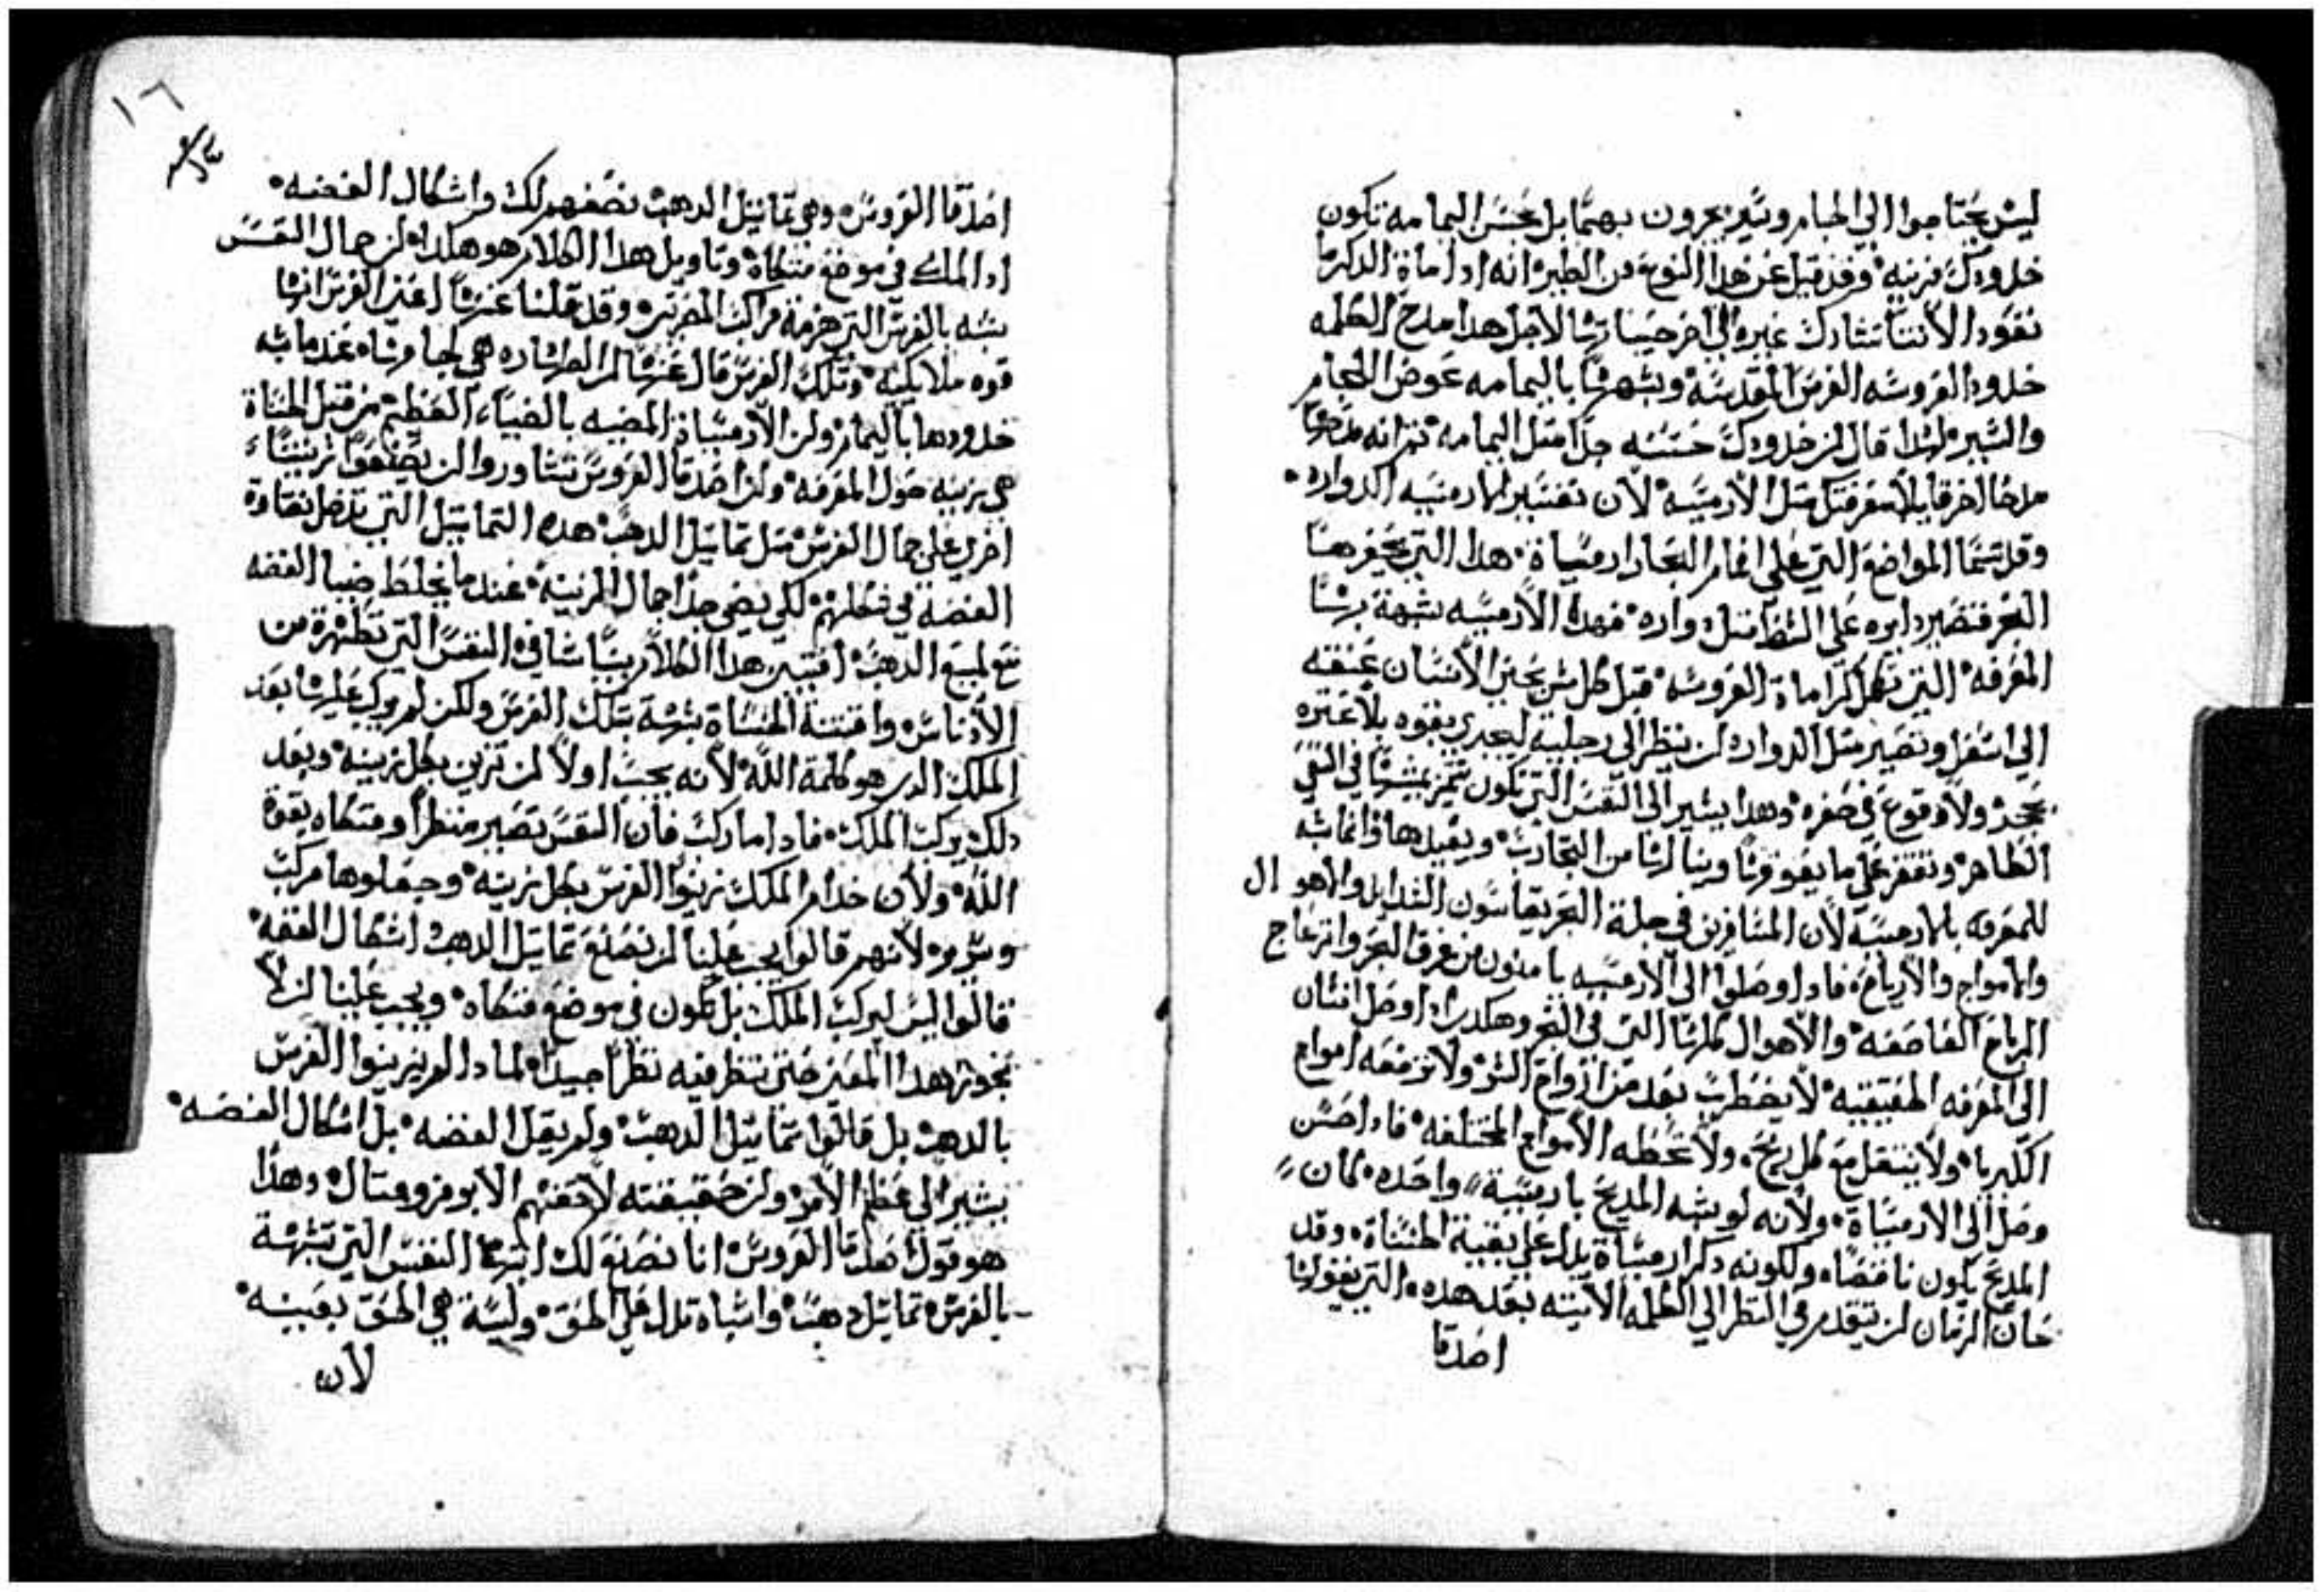 ليس يحتاجوا الي لجام وسير يجرون بهما بل بحسن اليمامه تكون
خدودك مزينه وقد قيل عن هذا النوع من الطير انه ادا ماة الدكر ما
تعود الانتا تشارك غيره الي اخر حيناتها لاجل هدا مدح الكلمه
خدود العروسه الفرس المقدسه وشبهها باليمامه عوض اللجام
والسير ولهدا قال ان خدودك حسنه جدا متل اليمامه تم انه مدحها
مدحا اخر قايلا عنقك متل الارميسه لان تفسير الارميسه الدواره
وقد تسما المواضع التي علي افمام البحار ارميساة هدا التي يحفرها
البحر فتصير دايره علي الشط متل دواره فهده الارميسه شبهة بها
المعرفه التي تكمل كراماة العروسه قبل كل شي يحني الانسان عنقه
الي اسفل وتصير متل الدواره ان ينظر الي رجليه ليجري بقوه بلا عتره
بحجر ولا وقوع في حفره وهدا يشير الي النفس التي تكون تميز مشيها في السعي
الطاهر وتقفز علي ما يعوقها وينالها من التجارب ويقيدها وانما شبه
المعرفه بالارميسه لان المسافرين في جلة البحر يقاسون الشدايد والاهوال
والامواج والارياح فادا وصلوا الي الارميسه يامنون من غرق البحر وانزعاج
الرياح العاصفه والاهوال كلها التي في البحر وهكدا ادا وصل انسان
الي المعرفه الحقيقيه لا يضطرب بعد من ارواح الشر ولا ترفعه امواج
الكبريا ولا ينتقل مع كل ريح ولا تحطه الامواج المختلفه فادا حسن
وصل الي الارميساة ولانه لو شبه المديح بارميسة واحده لكان
المديح يكون ناقصا ولكونه دكر ارميساة يدل علي بقية الحسناة وقد
حان الزمان ان نتقدم في النظر الي الكلمه الاتيه بعد هده التي يقولها
اصدقا
١٦
اصدقا العروس وهي تماتيل الدهب نصنعهم لك واشكال الفضه
ادا الملك في موضع متكاه وتاويل هدا الكلام هو هكدا ان جمال النفس
شبه بالفرس التي هزمة مراكب المصريين وقد قلنا عنها اعني الفرس انها
قوه ملايكيه وتلك الفرس قال عنها ان الطهاره هي لجامها عندما شبه
خدودها باليمام وان الارميساة المضيه بالضياء العظيم من قبل الحسناة
هي زينه حول المعرفه وان اصدقا العروس تشاوروا ان يصنعوا زينتاء
اخري علي جمال الفرس متل تماتيل الدهب هده التماتيل التي تدخل نقاوة
الفضة في شكلهم لكي يضي جدا جمال الزينة عندما يختلط ضيا الفضه
مع لميع الدهب افتبين هدا الكلام بيانا شافي النفس التي تطهرة من
الادناس واقتنة الحسناة شبهة بتلك الفرس ولكن لم يركب عليها بعد
الملك الدي هو كلمة الله لانه يجب اولا ان تزين بكل زينه وبعد
دلك يركب الملك فادا ما ركب فان النفس تصير منظرا ومتكاه بقوة
الله ولان خدام الملك زينوا الفرس بكل زينه وجعلوها مركب
وسرور لانهم قالوا يجب علينا ان نصنع تماتيل الدهب اشكال الفضه
قالوا ليس ليركب الملك بل تكون في موضع متكاه ويجب علينا ان لا
نجوز هدا المعني حتي ننظر فيه نظرا جيدا لمادا لم يزينوا الفرس
بالدهب بل قالوا تماتيل الدهب ولم يقل الفضه بل اشكال الفضه
يشير الي عظم الامر وان حقيقته لاحقتهم الا بومز ومتال وهدا
هو قول اصدقا العروس انا نصنع لك ايتها النفس التي تشبهة
بالفرس تماتيل دهب واشباه تدل علي الحق وليسة هي الحق بعينه
لان